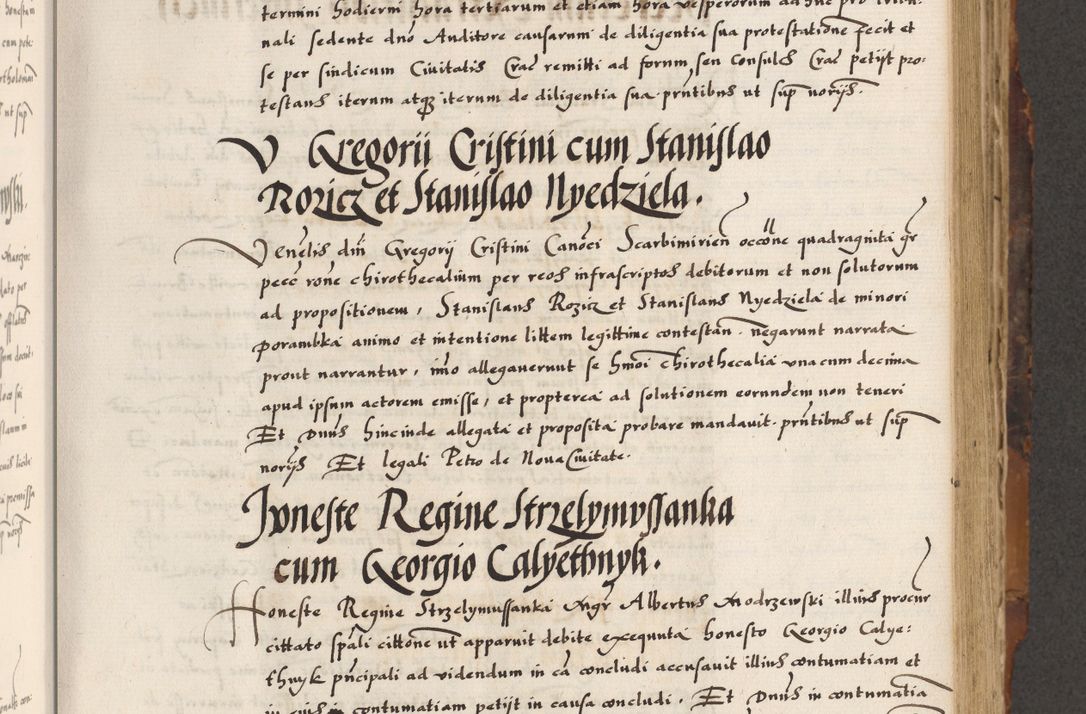 termini hodierni hora tertiarum et etiam hora vesperorum ad
nali sedente dno Auditore causarum de diligentia sua protestatione fecit et
se per sindicum Ciuitatis Crac remitti ad forum, seu Consules Crac petijt pro:
testans iterum atqz iterum de diligentia sua. pntibus ut sup norijs.
V Gregorii Cristini cum Stanislao
Rozicz et Stanislao Nyedziela.
Venelis dni Gregorij Cristini Canoci Scarbimirien occone quadraginta gr
pecc rone chirothecalium per reos infrascriptos debitorum et non solutorum
ad propositionem, Stanislaus Rozicz et Stanislaus Nyedziela de minori
porambka animo et intentione littem legittime contestan. negarunt narrata
prout narrantur, imo allegauerunt se hmoi chirothecalia vna cum decima
apud ipsum actorem emisse, et propterea ad solutionem eorundem non teneri
Et Dnus hincinde allegata et proposita probare mandauit. pntibus ut sup
norijs Et legali Petro de Noua Ciuitate.
Honeste Regine Strzelymussanka
cum Georgio Calyethnyk.
Honeste Regine Strzelymussanka mgr Albertus Modrzewski illius procur
cittato spali cittone ut apparuit debite exequuta honesto Georgio Calye:
thnyk pncipali ad videndum in ca concludi accusauit illius contumatiam et
in eius contumatiam petijt in causa concludi. Et Dnus in contumatia